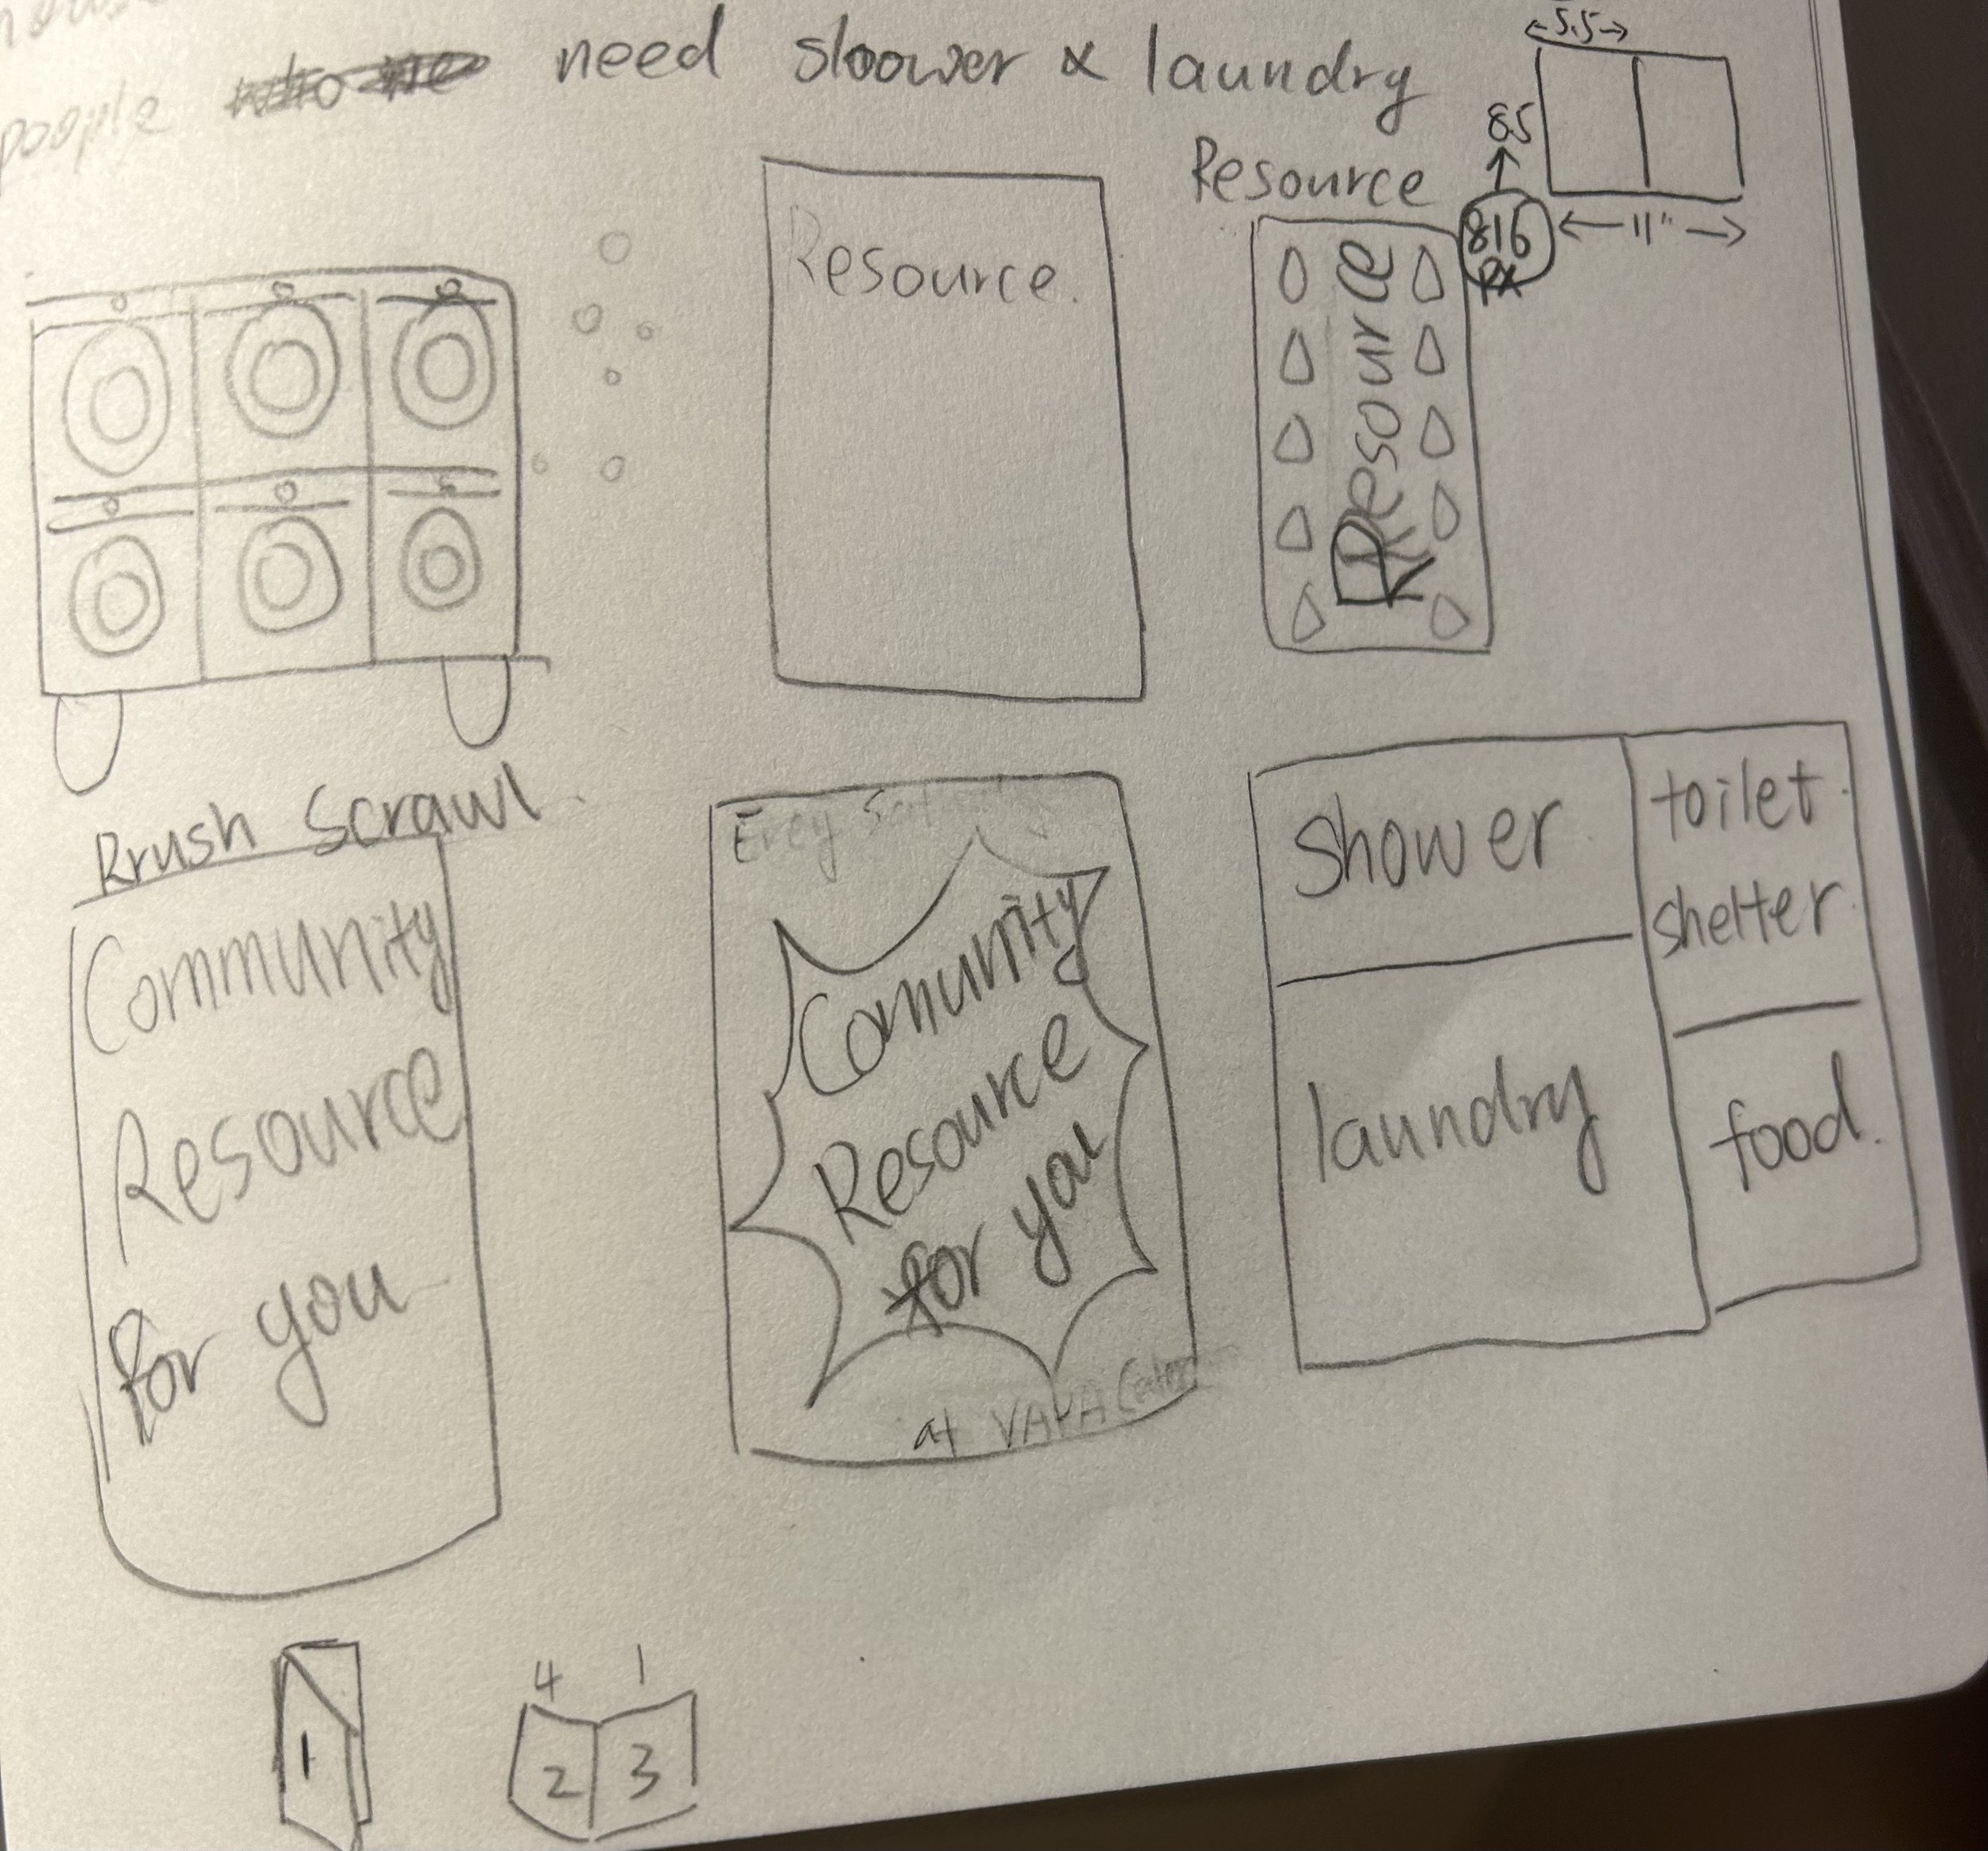 people need shower & laundry
5.5
8.5
11"
816
PX
Resource
Resource.
Resource
Brush Scrawl
Community
Resource
for you
Comunity
Resource
for you
at
shower
toilet
shelter
laundry
food.
1
4 1
2 3